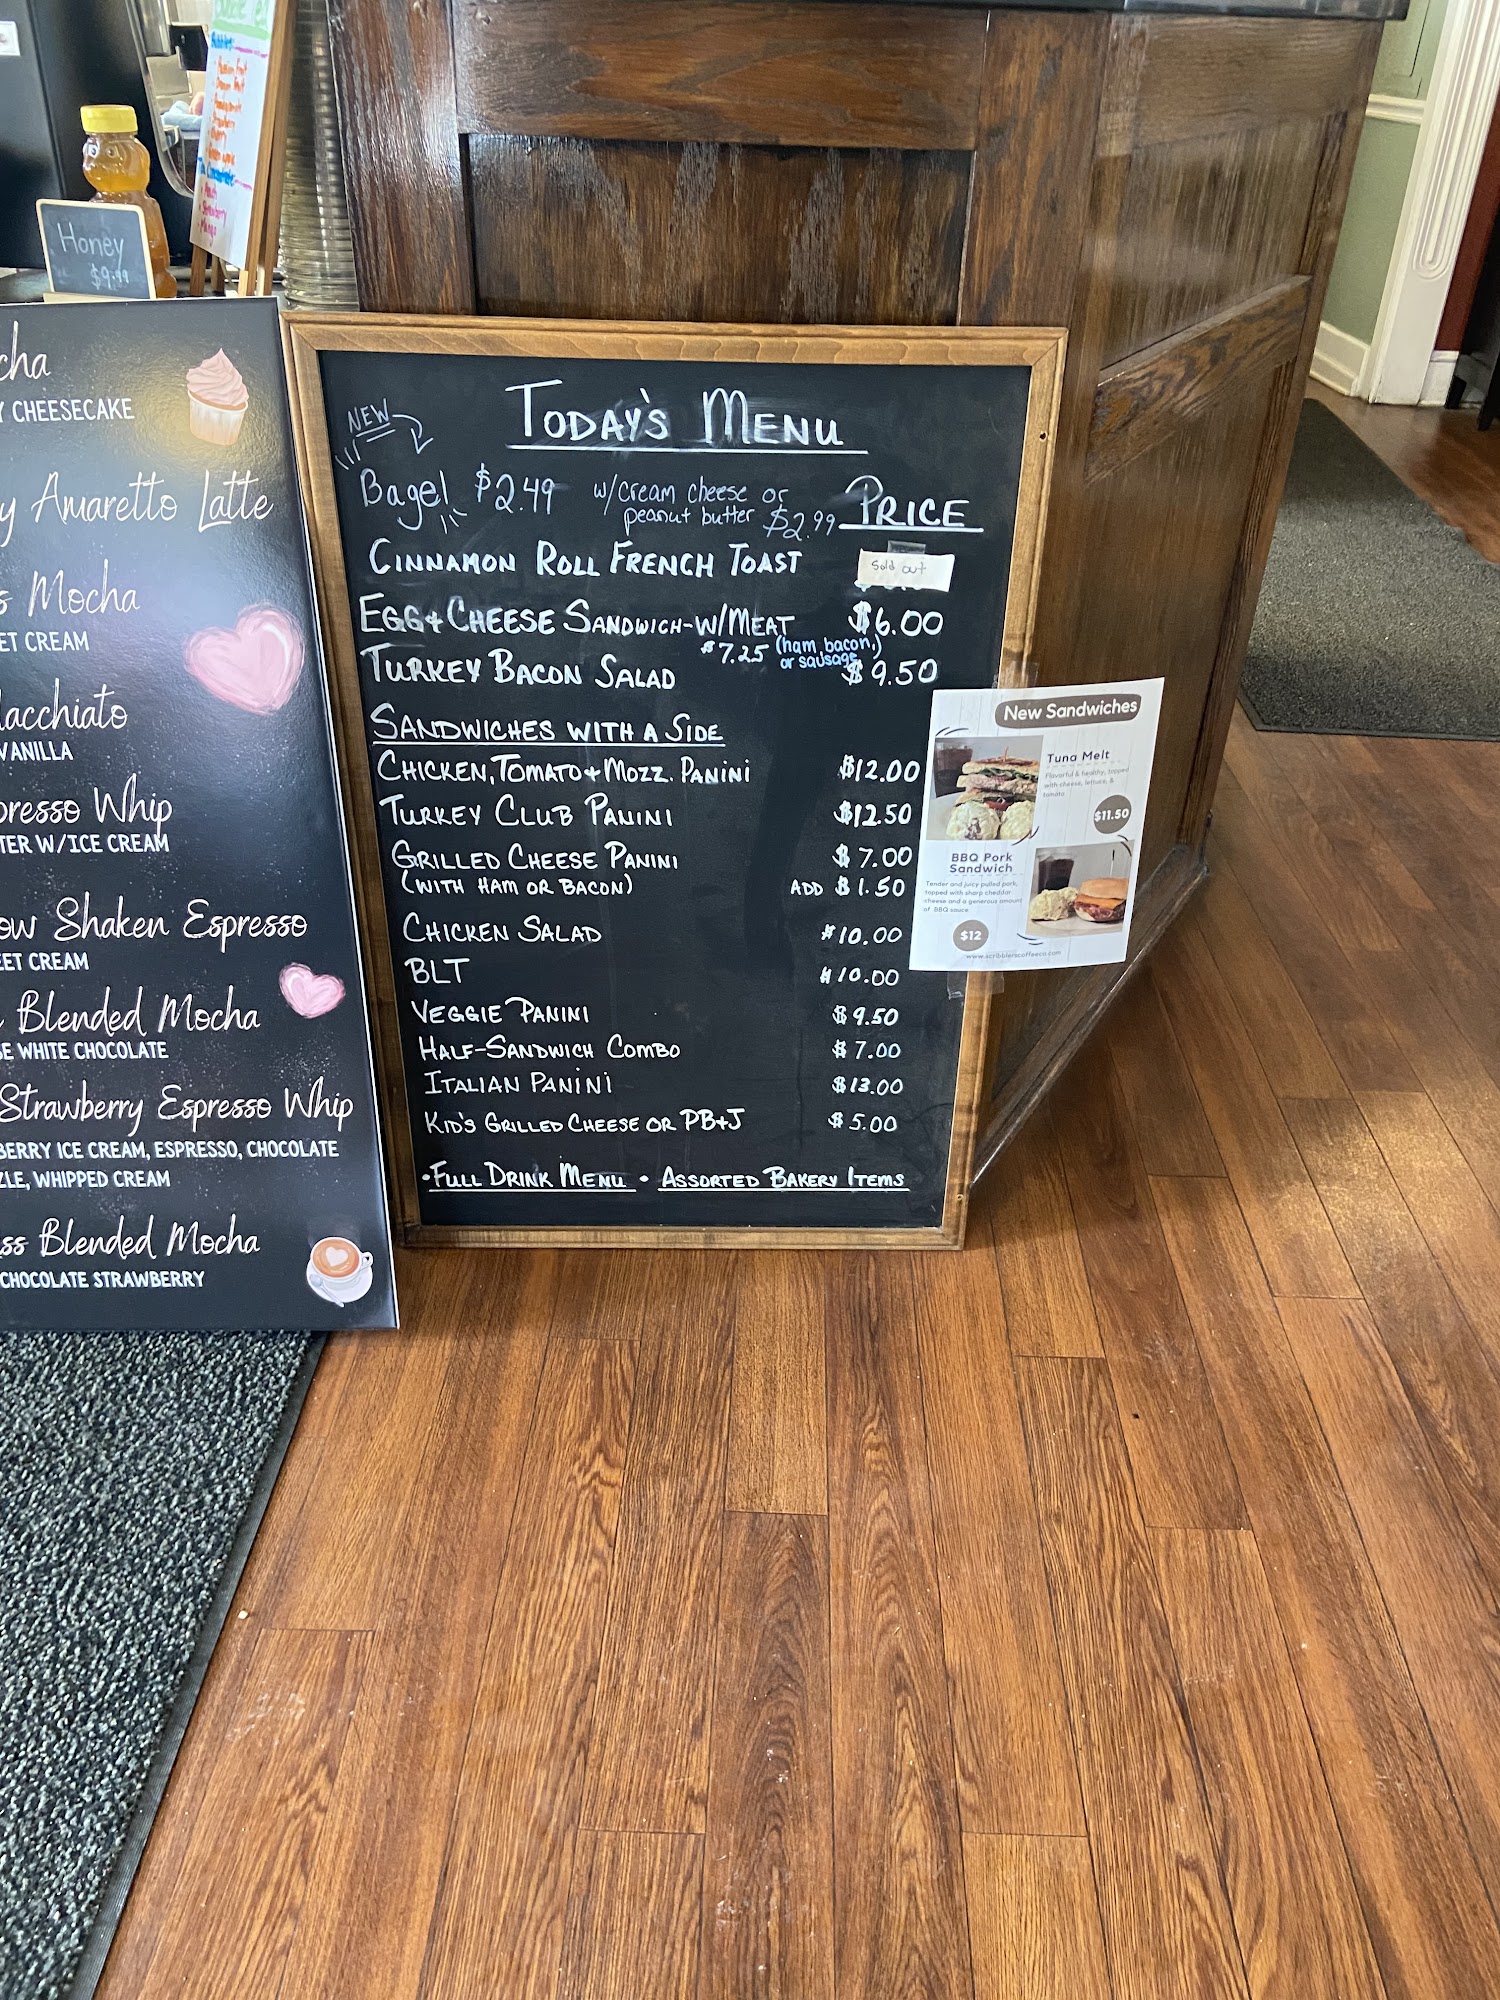 Honey
$9.99
cha
Y CHEESECAKE
y Amaretto Latte
s Mocha
ET CREAM
Macchiato
VANILLA
presso Whip
TER W/ICE CREAM
ow Shaken Espresso
EET CREAM
Blended Mocha
SE WHITE CHOCOLATE
Strawberry Espresso Whip
BERRY ICE CREAM, ESPRESSO, CHOCOLATE
ZLE, WHIPPED CREAM
ss Blended Mocha
CHOCOLATE STRAWBERRY
TODAY'S MENU
NEW
Bagel $2.49 w/cream cheese or
peanut butter $2.99
PRICE
CINNAMON ROLL FRENCH TOAST Sold out
EGG + CHEESE SANDWICH - W/MEAT $6.00
$7.25 (ham, bacon,)
or sausage
TURKEY BACON SALAD $9.50
SANDWICHES WITH A SIDE
CHICKEN, TOMATO + MOZZ. PANINI $12.00
TURKEY CLUB PANINI $12.50
GRILLED CHEESE PANINI $7.00
(WITH HAM OR BACON) ADD $1.50
CHICKEN SALAD $10.00
BLT $10.00
VEGGIE PANINI $9.50
HALF-SANDWICH COMBO $7.00
ITALIAN PANINI $13.00
KID'S GRILLED CHEESE OR PB+J $5.00
• FULL DRINK MENU • ASSORTED BAKERY ITEMS
New Sandwiches
Tuna Melt
Flavorful & healthy, topped
with cheese, lettuce, &
tomato
$11.50
BBQ Pork
Sandwich
Tender and juicy pulled pork,
topped with sharp cheddar
cheese and a generous amount
of BBQ sauce
$12
www.scribblerscoffeeco.com